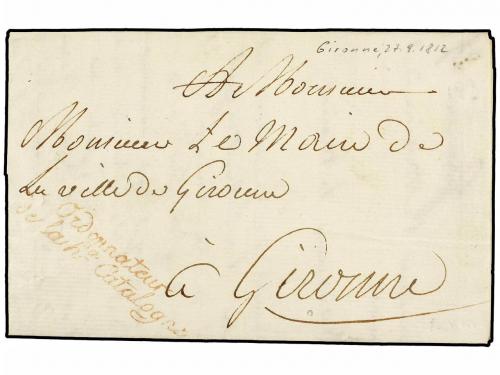 Gironne, 27.9.1812
A Monsieur
Monsieur Le Maire de
La ville de Gironne
à Gironne
Ordonnateur
de la hte Catalogne